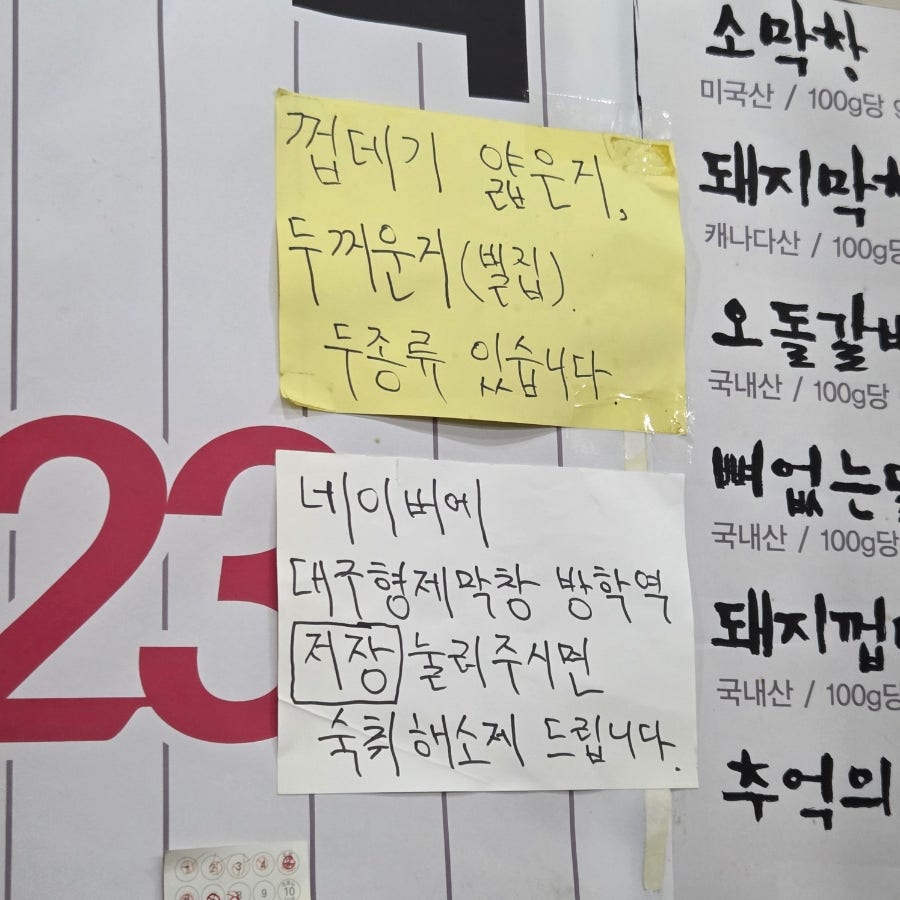 껍데기 얇은지,
두꺼운지(벌집).
두종류 있습니다.
네이버에
대구형제막창 방학역
저장 눌러주시면
숙취해소제 드립니다.
23
소막창
미국산 / 100g당
돼지막
캐나다산 / 100g당
오돌갈
국내산 / 100g당
뼈없는
국내산 / 100g당
돼지껍
국내산 / 100g당
추억의
1 2 3 4
9 10